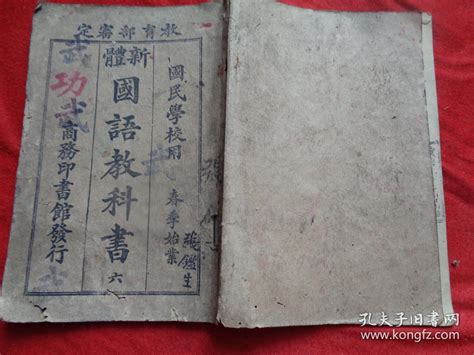 教育部審定
國民學校用
春季始業
新體
國語教科書
六
商務印書館發行
張鑑生
武
功
武
武
張
孔夫子旧书网
www.kongfz.com